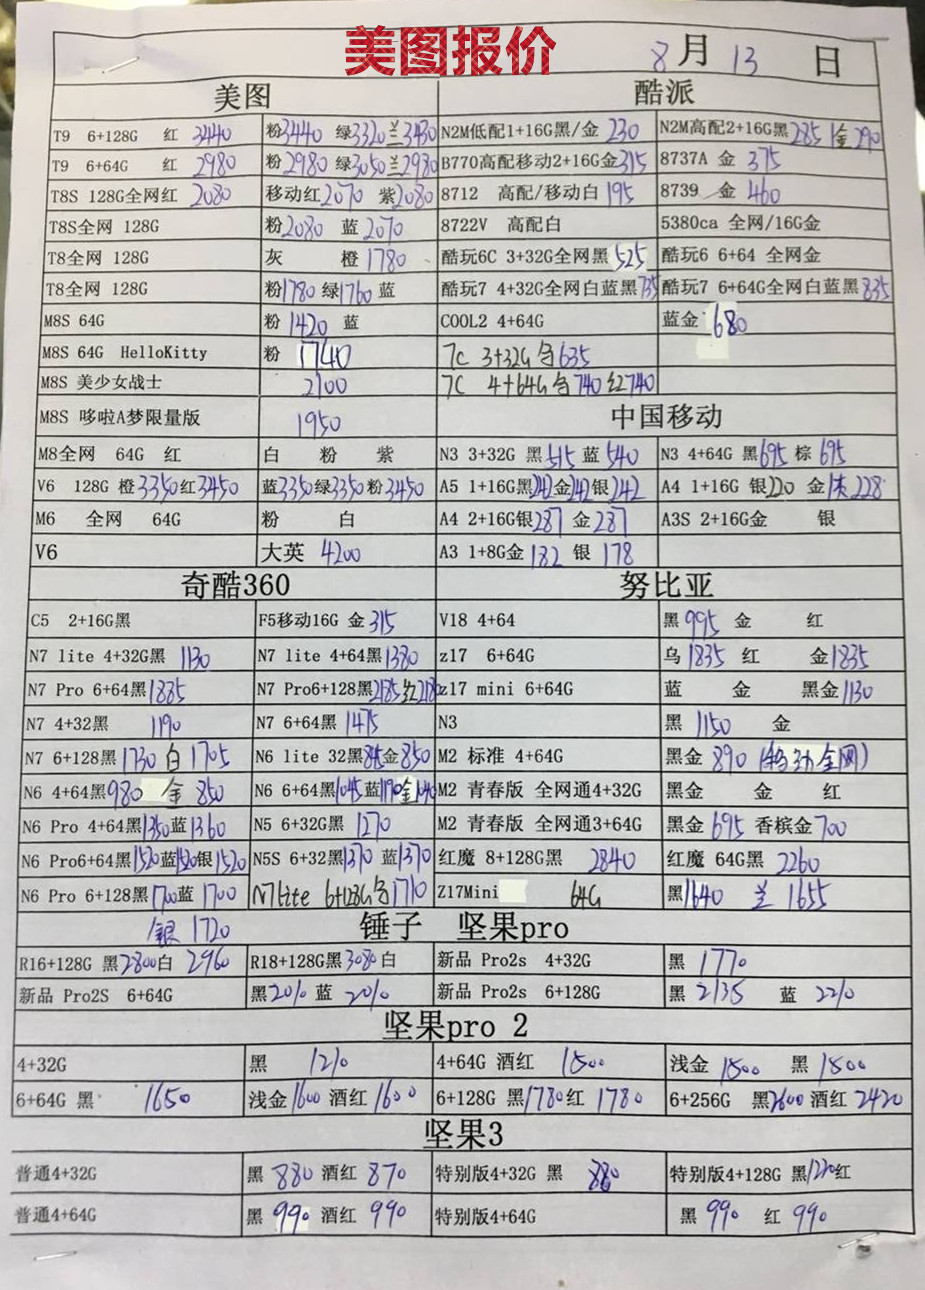 美图报价
8月13日
美图 酷派
T9 6+128G 红 3440 粉3440 绿3320兰3430 N2M低配1+16G黑/金 230 N2M高配2+16G黑285 金290
T9 6+64G 红 2980 粉2980 绿3050兰2980 B770高配移动2+16G金315 8737A 金 375
T8S 128G全网红 2080 移动红2070 紫2080 8712 高配/移动白 195 8739 金 460
T8S全网 128G 粉2080 蓝 2070 8722V 高配白 5380ca 全网/16G金
T8全网 128G 灰 橙1780 酷玩6C 3+32G全网黑525 酷玩6 6+64 全网金
T8全网 128G 粉1780 绿1760 蓝 酷玩7 4+32G全网白蓝黑735 酷玩7 6+64G全网白蓝黑835
M8S 64G 粉 1420 蓝 COOL2 4+64G 蓝金 680
M8S 64G HelloKitty 粉 1740 7C 3+32G 635
M8S 美少女战士 2100 7C 4+64G 740 红740
M8S 哆啦A梦限量版 1950 中国移动
M8全网 64G 红 白 粉 紫 N3 3+32G 黑515 蓝 540 N3 4+64G 黑695 棕 695
V6 128G 橙3350红3450 蓝3350绿3350粉3450 A5 1+16G黑242金242银242 A4 1+16G 银220 金 228
M6 全网 64G 粉 白 A4 2+16G银287 金 287 A3S 2+16G金 银
V6 大英 4200 A3 1+8G金 182 银 178
奇酷360 努比亚
C5 2+16G黑 F5移动16G 金 315 V18 4+64 黑995 金 红
N7 lite 4+32G黑 1130 N7 lite 4+64黑1380 z17 6+64G 乌 1835 红 金1835
N7 Pro 6+64黑1885 N7 Pro6+128黑2185 红2180 z17 mini 6+64G 蓝 金 黑金1130
N7 4+32黑 1190 N7 6+64黑 1475 N3 黑 1150 金
N7 6+128黑1730 白 1705 N6 lite 32黑845金850 M2 标准 4+64G 黑金 890 (移动全网)
N6 4+64黑980 金 850 N6 6+64黑1045蓝1190金1040 M2 青春版 全网通4+32G 黑金 金 红
N6 Pro 4+64黑1350蓝1360 N5 6+32G黑 1270 M2 青春版 全网通3+64G 黑金 695 香槟金700
N6 Pro6+64黑1520蓝1520银1520 N5S 6+32黑1370 蓝1370 红魔 8+128G黑 2840 红魔 64G黑 2260
N6 Pro 6+128黑1700蓝 1700 N7Lite 6+128G 1710 Z17Mini 64G 黑1640 兰 1655
银 1720 锤子 坚果pro
R16+128G 黑2800白 2960 R18+128G黑3080白 新品 Pro2s 4+32G 黑 1770
新品 Pro2S 6+64G 黑2010 蓝 2010 新品 Pro2s 6+128G 黑 2135 蓝 2210
坚果pro 2
4+32G 黑 1210 4+64G 酒红 1500 浅金 1500 黑 1500
6+64G 黑 1650 浅金1600 酒红1600 6+128G 黑1780红 1780 6+256G 黑2600酒红2420
坚果3
普通4+32G 黑 880 酒红 870 特别版4+32G 黑 880 特别版4+128G 黑1220红
普通4+64G 黑 990 酒红 990 特别版4+64G 黑 990 红 990